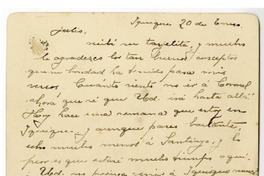 Iquique 20 de Enero.
Julio.
recibí su tarjetita, y mucho
le agradezco los tan buenos conceptos
que su bondad ha tenido para
Cuánto siento no ir á Coronel
ahora que sé que Ud. irá hasta allá!
Hoy hace una semana que estoy en
Iquique; y aunque paseo bastante,
echo mucho menos á Santiago, y lo
peor es que estaré mucho tiempo aquí.
Ud. no piensa venir á Iquique